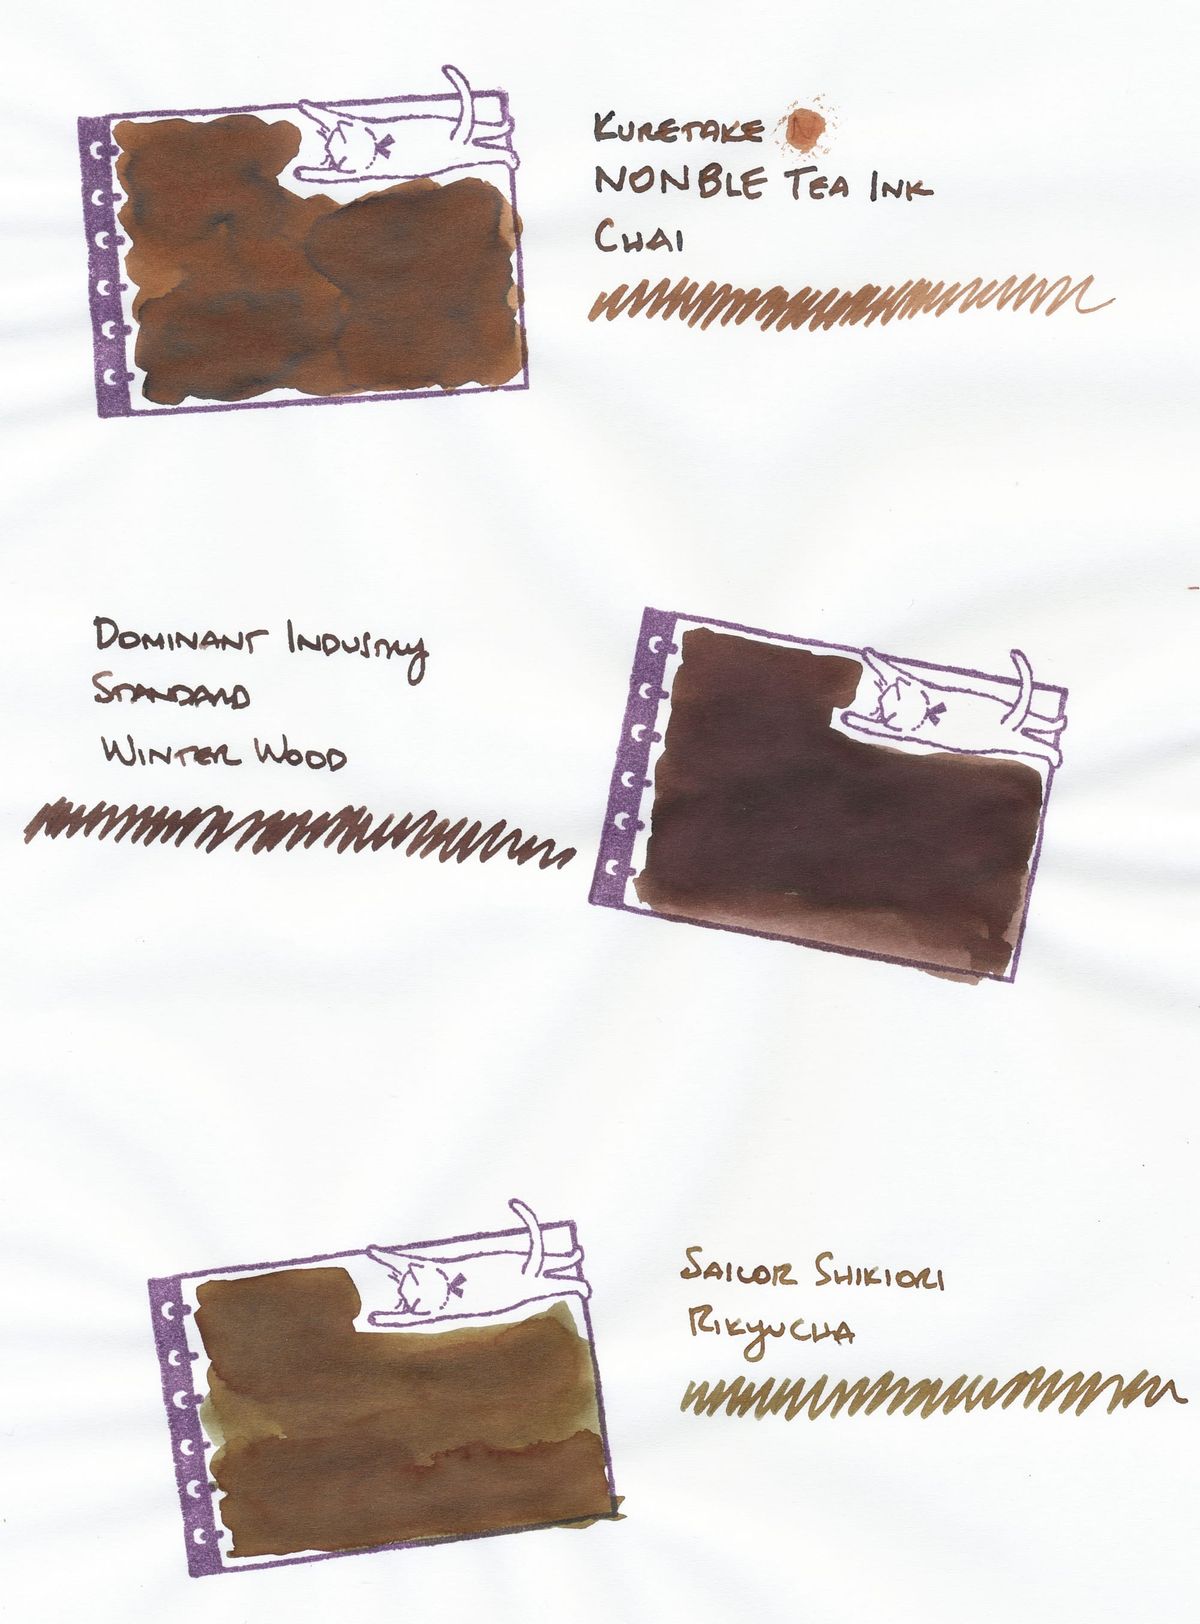 Kuretake
NONBLE Tea Ink
Chai
Dominant Industry
Standard
Winter Wood
Sailor Shikiori
Rikyucha